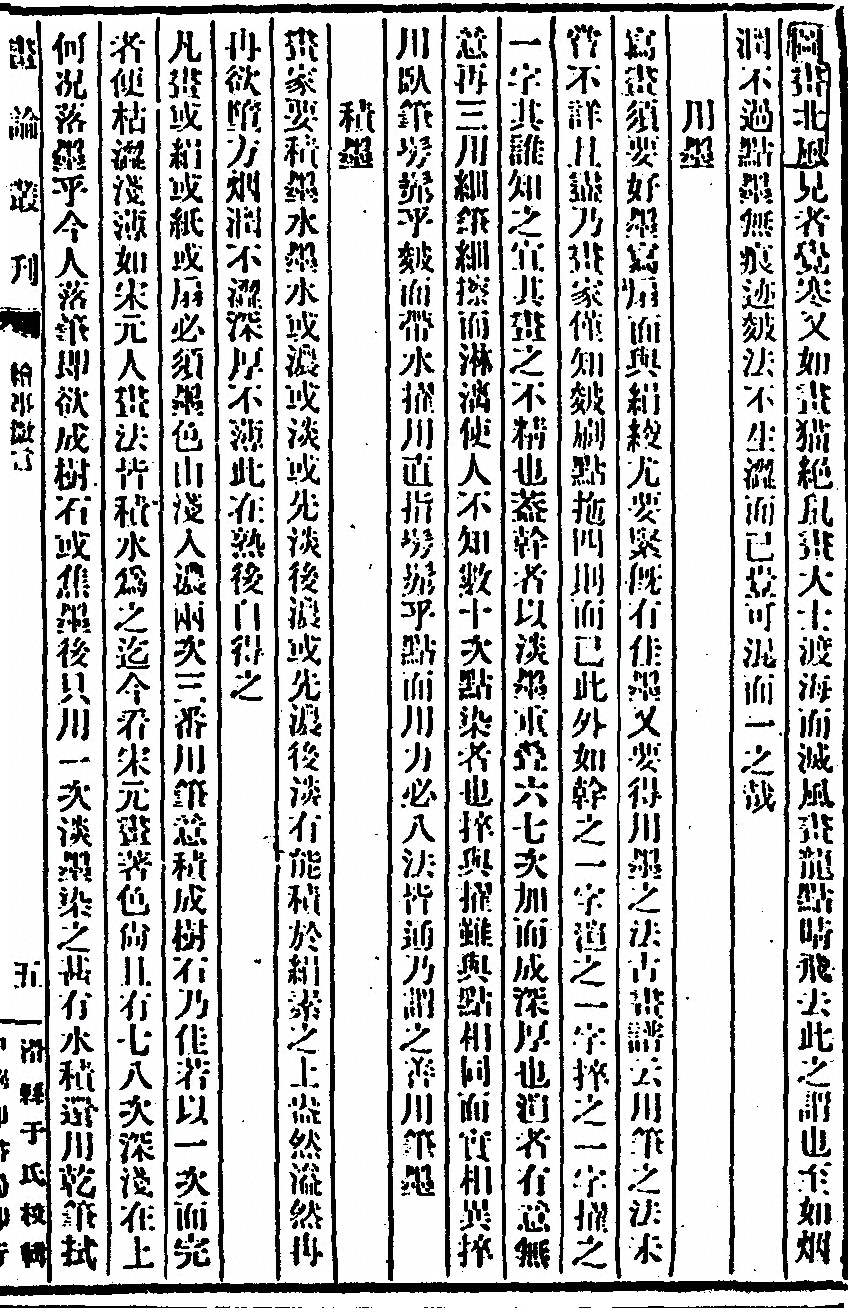 圖畫北風見者覺寒又如畫猫絕鼠畫大士渡海而滅風畫龍點睛飛去此之謂也至如烟
潤不過點墨無痕迹皴法不生澀而已豈可混而一之哉
用墨
寫畫須要好墨寫扇面與絹綾尤要緊既有佳墨又要得用墨之法古畫譜云用筆之法未
嘗不詳且盡乃畫家僅知皴刷點拖四則而已此外如幹之一字渲之一字捽之一字擢之
一字其誰知之宜其畫之不精也蓋幹者以淡墨重疊六七次加而成深厚也渲者有意無
意再三用細筆細擦而淋漓使人不知數十次點染者也捽與擢雖與點相同而實相異捽
用臥筆髣髴乎皴而帶水擢用直指髣髴乎點而用力必八法皆通乃謂之善用筆墨
積墨
畫家要積墨水墨水或濃或淡或先淡後濃或先濃後淡有能積於絹素之上盎然溢然冉
冉欲墮方烟潤不澀深厚不薄此在熟後自得之
凡畫或絹或紙或扇必須墨色由淺入濃兩次三番用筆意積成樹石乃佳若以一次而完
者便枯澀淺薄如宋元人畫法皆積水為之迄今看宋元畫著色尚且有七八次深淺在上
何況落墨乎今人落筆即欲成樹石或焦墨後只用一次淡墨染之甚有水積還用乾筆拭
畫論叢刊
繪事微言
五
沿縣于氏校輯